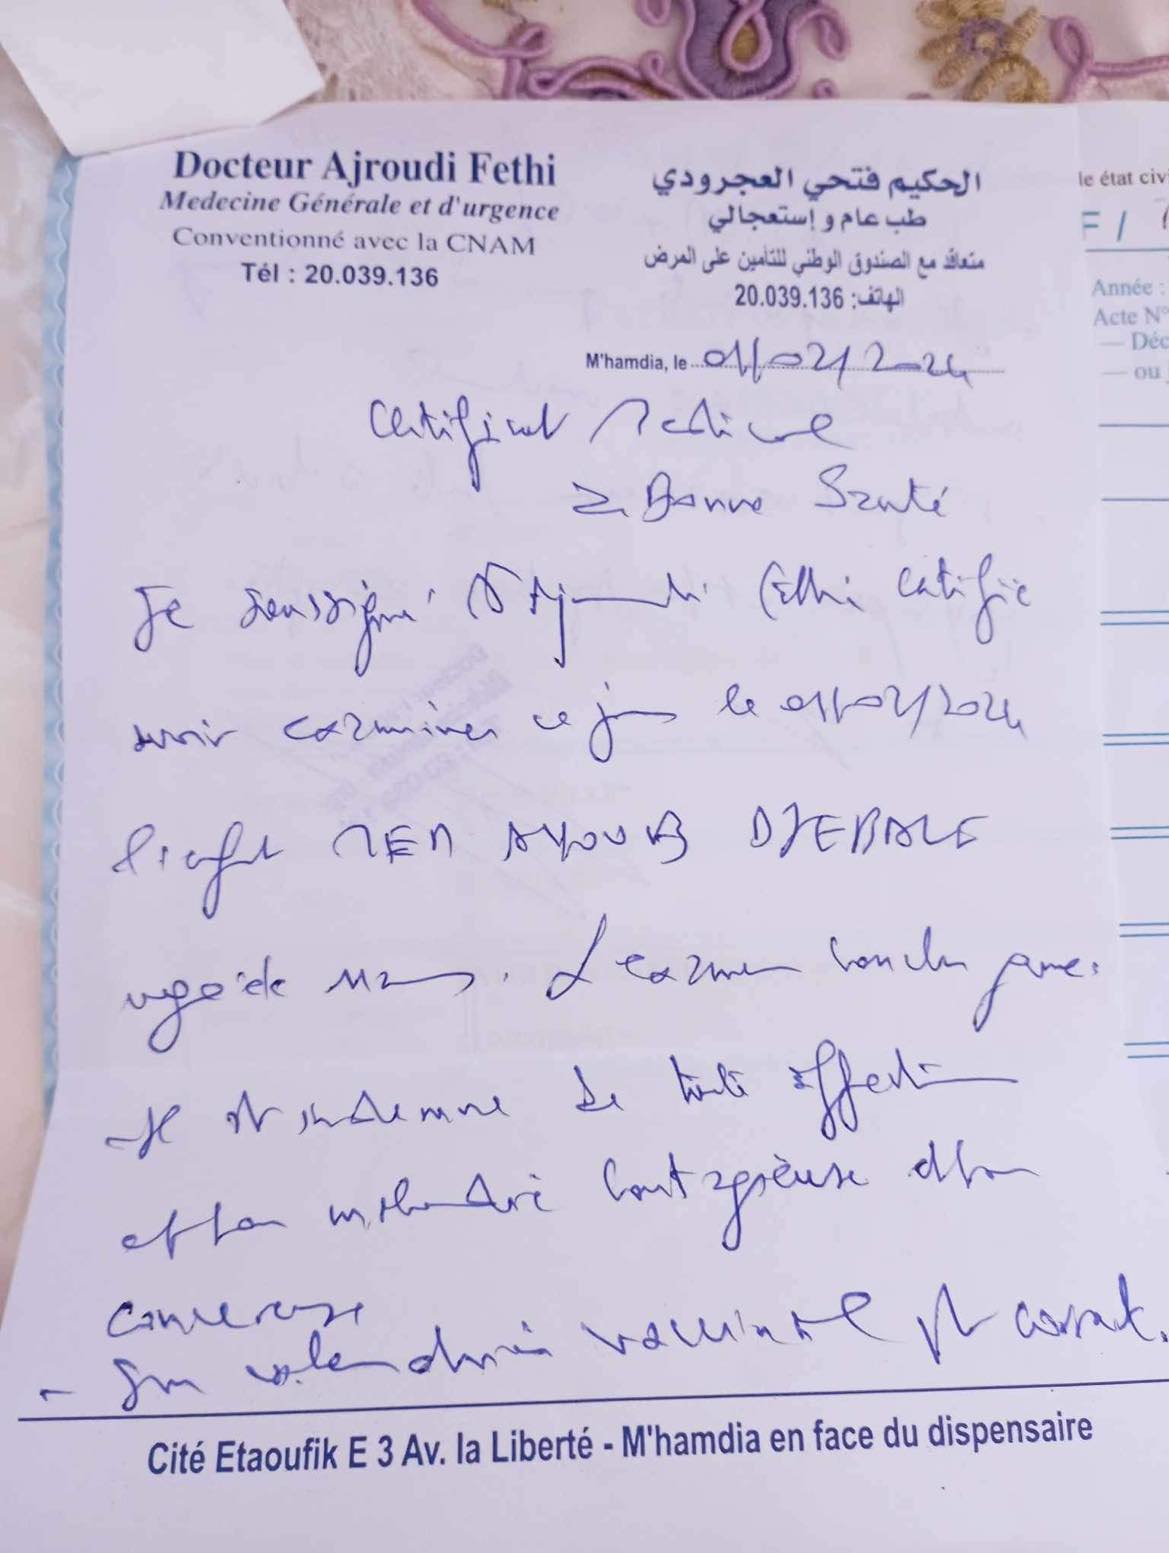 Docteur Ajroudi Fethi
Medecine Générale et d'urgence
Conventionné avec la CNAM
Tél : 20.039.136
الحكيم فتحي العجرودي
طب عام و إستعجالي
متعاقد مع الصندوق الوطني للتأمين على المرض
الهاتف: 20.039.136
M'hamdia, le 01/02/2024
Certificat Medicale
de Bonne Santé
Je soussigné Dr Ajroudi Fethi certifie
avoir examiner ce jour le 01/02/2024
l'enfant MED AYOUB DJEBALI
agé de mois. L'examen conclu que
est indemne de toute affection
et ou maladie contagieuse et ou
Son calendrier vaccinale est correct.
Cité Etaoufik E 3 Av. la Liberté - M'hamdia en face du dispensaire
le état civ
F /
Année :
Acte N°
— Déc
— ou